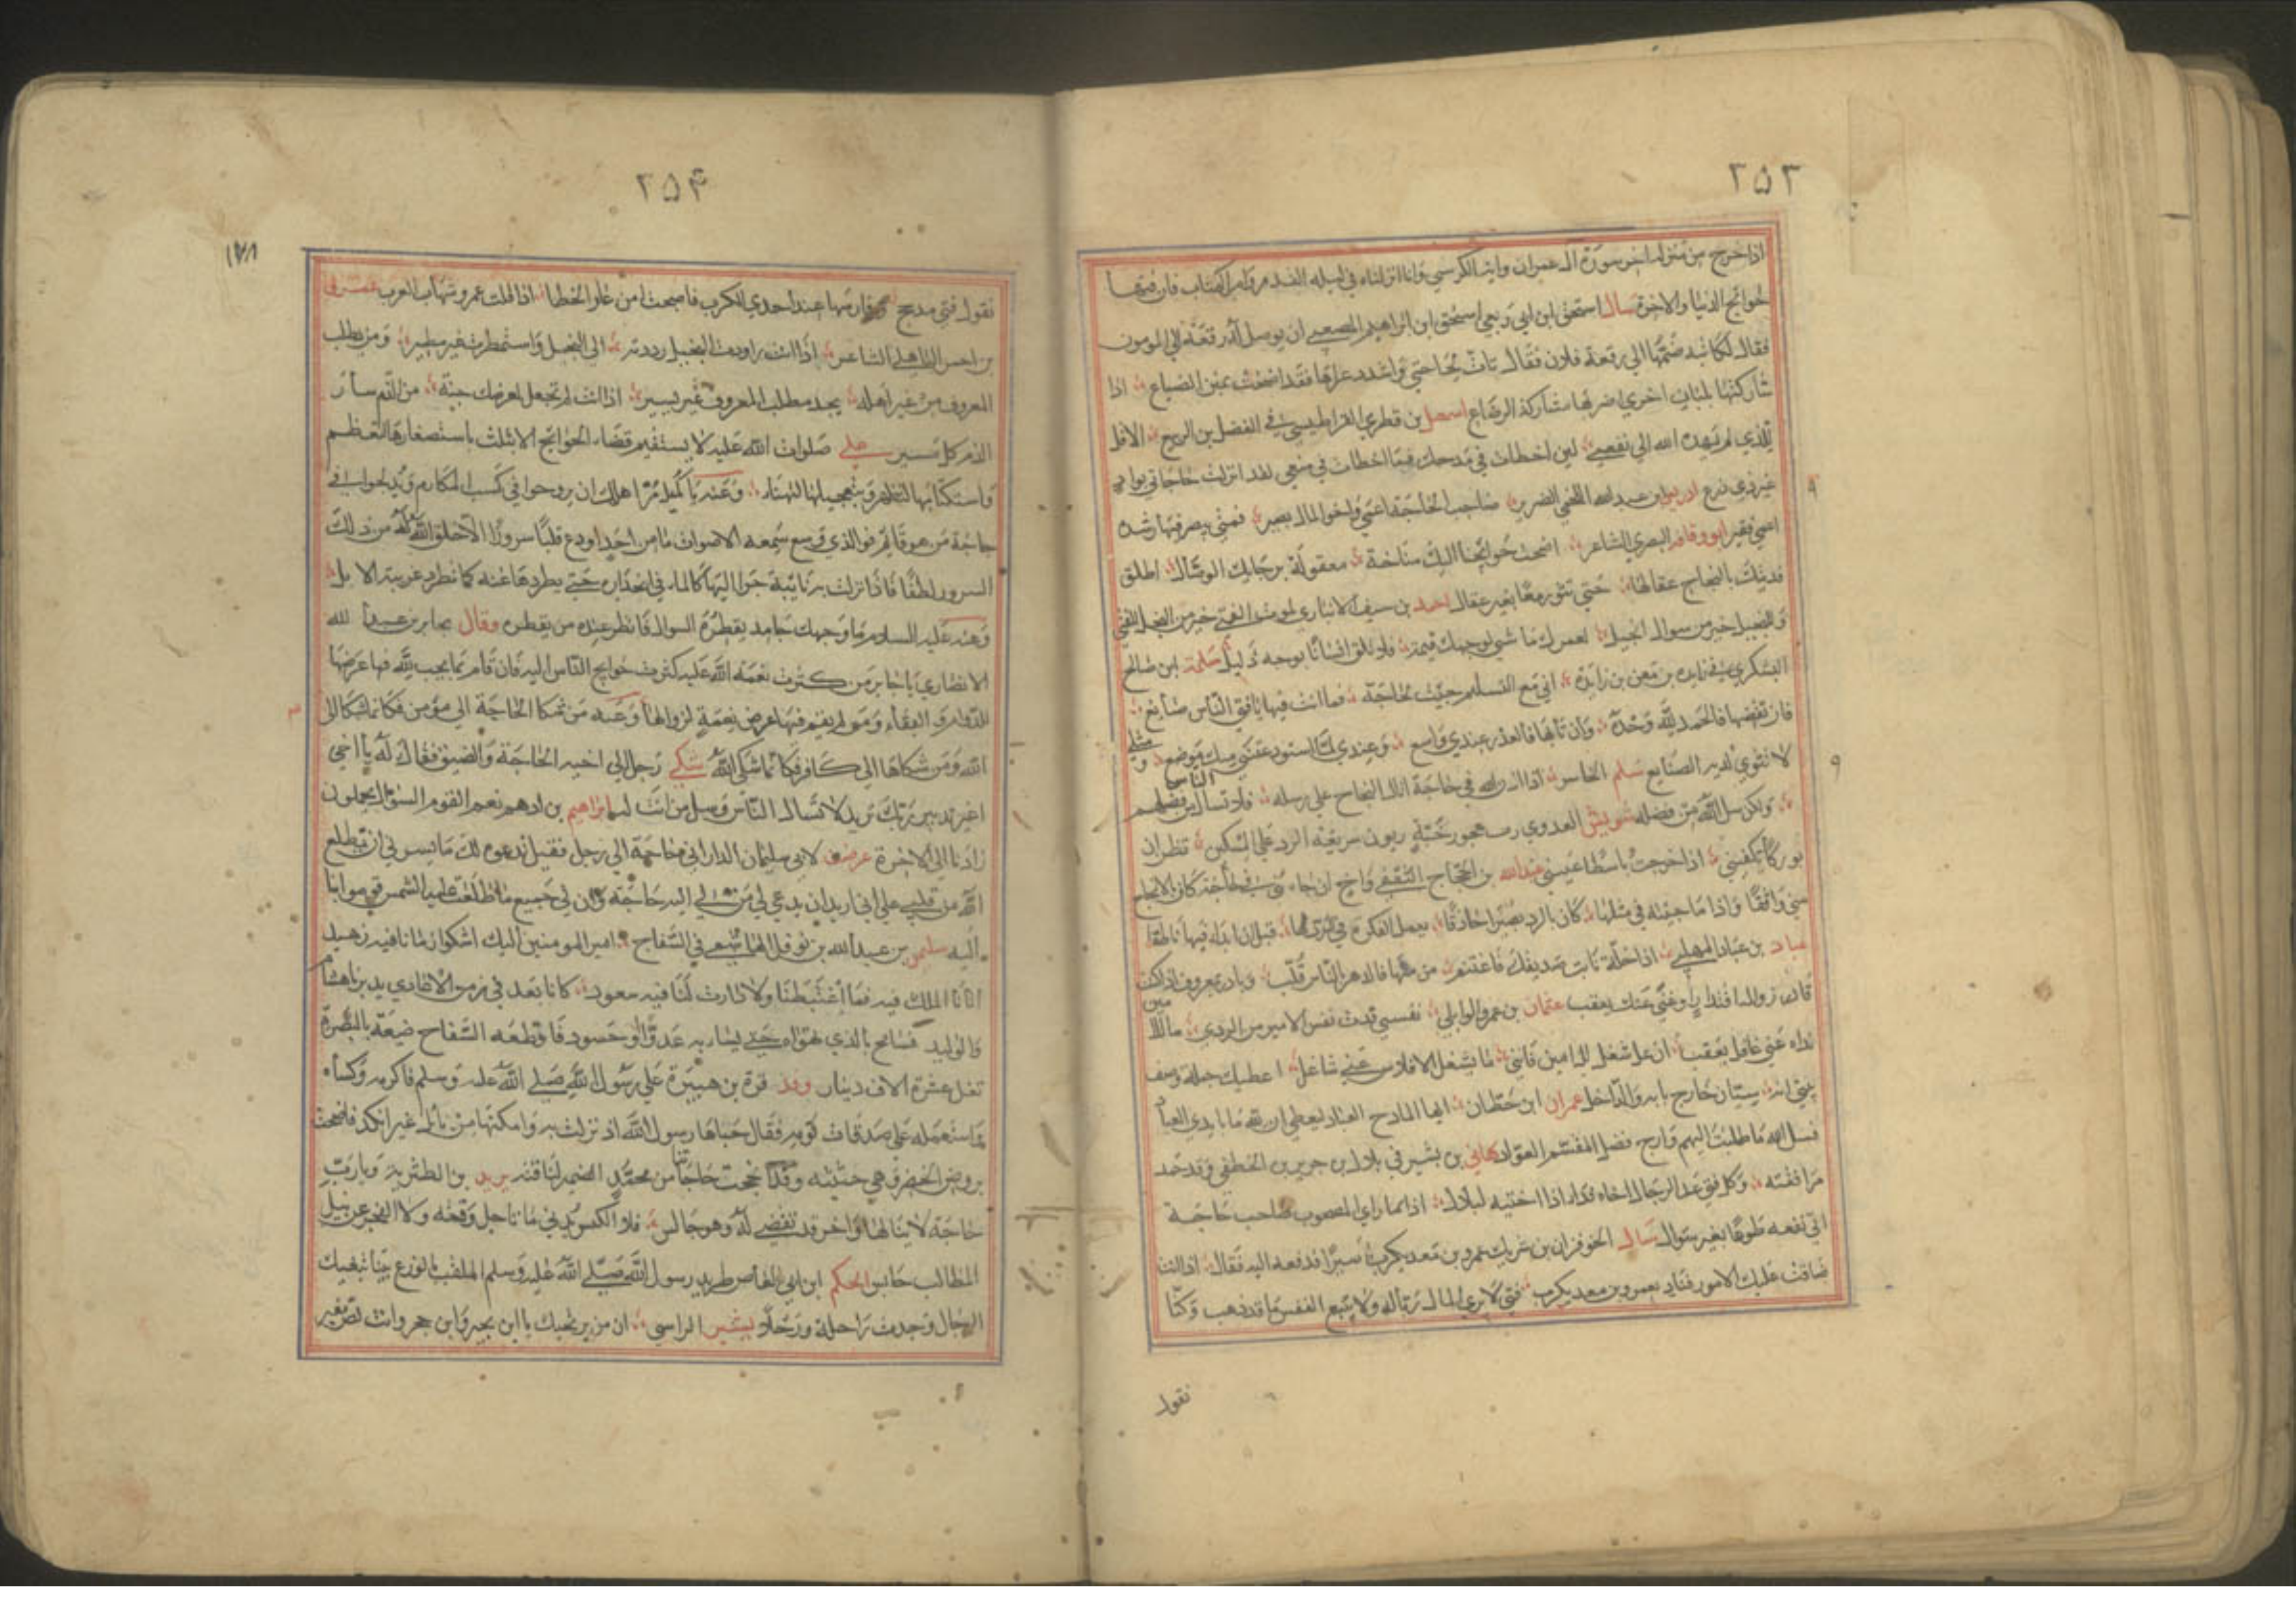 ٢٥٣
اذا خرج من منزله اخر سورة ال عمران واية الكرسي وانا انزلناه في ليلة القدر وام الكتاب فان فيها
حوائج الدنيا والاخرة سال اسحق ابن ابي ربعي اسحق ابن ابراهيم المصعبي ان يوصل له رقعة الي المومون
فقال لكاتبه ضمها الي رقعة فلان فقال تانّ لحاجتي واشدد عراها فقد اضحت بمنزل الضياع اذا
شاركتها بلبان اخري اضر بها مشاركة الرضاع اسمعيل بن قطري القراطيسي في الفضل بن الربيع الا قل
للذي لم يهده الله الي نفعي لين اخطات في مدحك فما اخطات في منعي لقد انزلت حاجاتي بواد
غير ذي زرع ادريس بن عبد الله اللخمي الضرير صاحب الحاجة اعمي واخو المال بصير فمتي يبصر فيها رشده
اعمي فقير ابو وقافه البصري الشاعر اضحت حوائجنا اليك مناخة معقولة برحابك الوصال اطلق
فديتك بالنجاح عقالها حتي تثور معا بغير عقال احمد بن سيف الانباري لموت الفتي خير من البخل للفتي
وللبخل خير من سوال البخيل لعمرك ما شي لوجهك قيمة فلا تلق انسانا بوجه ذليل سلمة ابن صالح
اليشكري في زايدة بن معن بن زايدة اني مع التسليم جيت لحاجة فما انت فيها يا فتي الناس صانع
فان تقضها فالحمد لله وحده وان تابها فالعذر عندي واسع وعندي لما استودعتني منك موضع ومثلي
لا تثوي لديه الصنايع سلم الخاسر اذا اذن الله في حاجة اتاك النجاح علي رسله فلا تسال الناس من فضلهم
ولكن سل الله من فضله شويش العدوي رب عجوز خبة زبون سريعة الرد علي المسكين تظن ان
بوركا يكفيني اذا خرجت باسطا عيني عبد الله بن الحجاج الثقفي واخ ان جاء في حاجة كان بالانجاح
مني واثقا واذا ما جيته في مثلها كان بالرد بصيرا حاذقا يعمل الفكرة في الرد لها قبل ان ابدا فيها ناطقا
عباد بن عباد المهلبي اذا خلة نابت صديقك فاغتنم مرمتها فالدهر بالناس قلب وبادر بمعروف اذا كنت
قادرا زوال اقتدار او غني عنك يعقب عثمان بن عمر الوابلي نفسي فدت نفس الامير من الردي ما لك من
نداه عني غافل يعقب ان عل شغل للامين فانني ما يشغل الافلاس عني شاغل اعطيك جملة وصف
بيتي انه سيان خارج بابه والداخل عمران ابن حطان ايها المادح العباد ليعطي ان لله ما بايدي العباد
فسل الله ما طلبت اليهم وارج فضل المقسم العواد هاني بن بشير في بلال بن جرير بن الخطفي وقد حمد
مرافقته وكل فتي عد الرجال اخاءه فداء اذا اخيته لبلال اذا ما راي المصحوب صاحب حاجة
اتي نفعه طوعا بغير سوال سال الحوفزان بن شريك عمرو بن معديكرب اسيرا فدفعه اليه فقال اذا انت
ضاقت عليك الامور فناد بعمرو بن معديكرب فتي لا يري المال رباله ولا يتبع النفس ما قد ذهب وكنا
نقول
٢٥۴
١٧٨
نقول فتي مدحج وفارسها عند احدي الكرب فاصبحت من غلو الخطا اذا قلت عمرو شهاب العرب عمرو
بن احمر الباهلي الشاعر اذا انت راودت البخيل رددته الي البخل واستمطرت غير مطير ومن يطلب
المعروف من غير اهله يجد مطلب المعروف غير يسير اذا انت لم تجعل لعرضك جنة من الذم سار
الذم كل مسير علي صلوات الله عليه لا يستقيم قضاء الحوائج الا بثلث باستصغارها لتعظم
واستكتامها لتظهر وبتعجيلها لتهنا وعنه يا كميل مر اهلك ان يروحوا في كسب المكارم ويدلجوا في
حاجة من هو قايم فو الذي وسع سمعه الاصوات ما من احد اودع قلبا سرورا الا خلق الله له من ذلك
السرور لطفا فاذا نزلت به نايبة جرا اليها كالماء في انحداره حتي يطردها عنه كما تطرد غريبة الابل
وعنه عليه السلام ما وجهك جامد يقطره السوال فانظر عند من يقطره وقال جابر بن عبد الله
الانصاري يا جابر من كثرت نعمة الله عليه كثرت حوايج الناس اليه فان قام بما يجب لله فيها عرضها
للدوام والبقاء ومن لم يقم فيها عرض نعمة لزوالها وعنه من شكا الحاجة الي مومن فكانما شكا الي
الله ومن شكاها الي كافر فكانما شكي الله شكي رجل الي اخيه الحاجة والضيق فقال له يا اخي
اغير تدبير ربك تريد لا تسال الناس وسل من انت له ابراهيم بن ادهم نعم القوم السوال يحملون
زادنا الي الاخرة عرضت لابي سليمان الداراني حاجة الي رجل فقيل ندعوه لك ما يسوني ان يطلع
الله من قلبي علي اني اريد ان يدعي لي من لي اليه حاجة وان لي جميع ما طلعت عليه الشمس قومو ابنا
اليه سليمن بن عبد الله بن نوفل الهاشمي في السفاح امير المومنين اليك اشكو زمانا فيه زهيد
اتانا الملك فيه فما اغتبطنا ولا دارت لنا فيه سعود كانا بعد في زمن الاعادي يدبرنا هشام
والوليد فسامح بالذي نهواه حتي يساء به عدو او حسود فاقطعه السفاح ضيعة بالبصرة
تغل عشرة الاف دينار وفد قرة بن هبيرة علي رسول الله صلي الله عليه وسلم فاكرمه وكساه
واستعمله علي صدقات قومه فقال حباها رسول الله اذ نزلت به وامكنها من نائل غير انكد فاضحت
بروض الخضر وهي حثيثة وقد انجحت حاجاتنا من محمد يزيد بن الطثرية ويا رب
حاجة لا ينالها واخر قد تقضي له وهو جالس فلا الكسو يدني ما تاجل وقعه ولا العجز عن نيل
المطالب حابس الحكم ابن ابي العاص طريد رسول الله صلي الله عليه وسلم الملقب بالوزغ
الرحال وجدت راحلة ورحلا بشير الراسي ان من يرتجيك يا ابن بجير وابن حجر وانت